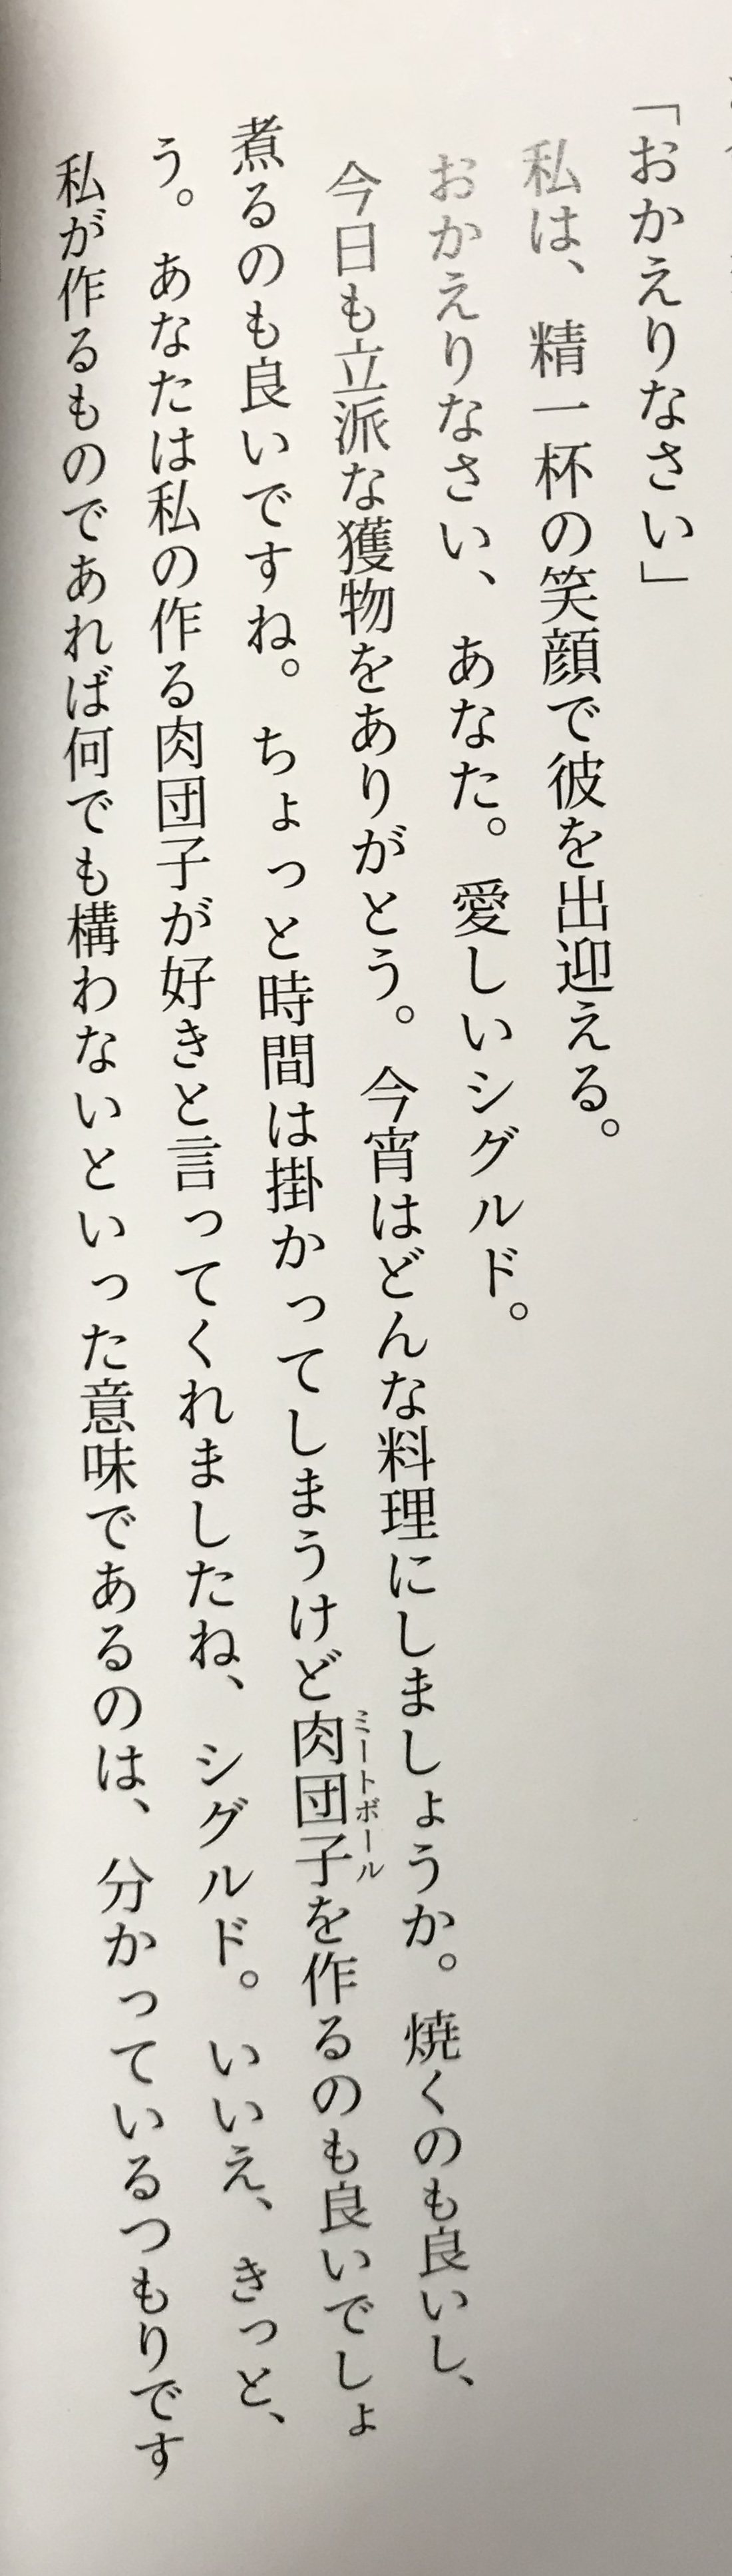 「おかえりなさい」
私は、精一杯の笑顔で彼を出迎える。
おかえりなさい、あなた。愛しいシグルド。
今日も立派な獲物をありがとう。今宵はどんな料理にしましょうか。焼くのも良いし、
煮るのも良いですね。ちょっと時間は掛かってしまうけど肉団子を作るのも良いでしょ
ミートボール
う。あなたは私の作る肉団子が好きと言ってくれましたね、シグルド。いいえ、きっと、
私が作るものであれば何でも構わないといった意味であるのは、分かっているつもりです